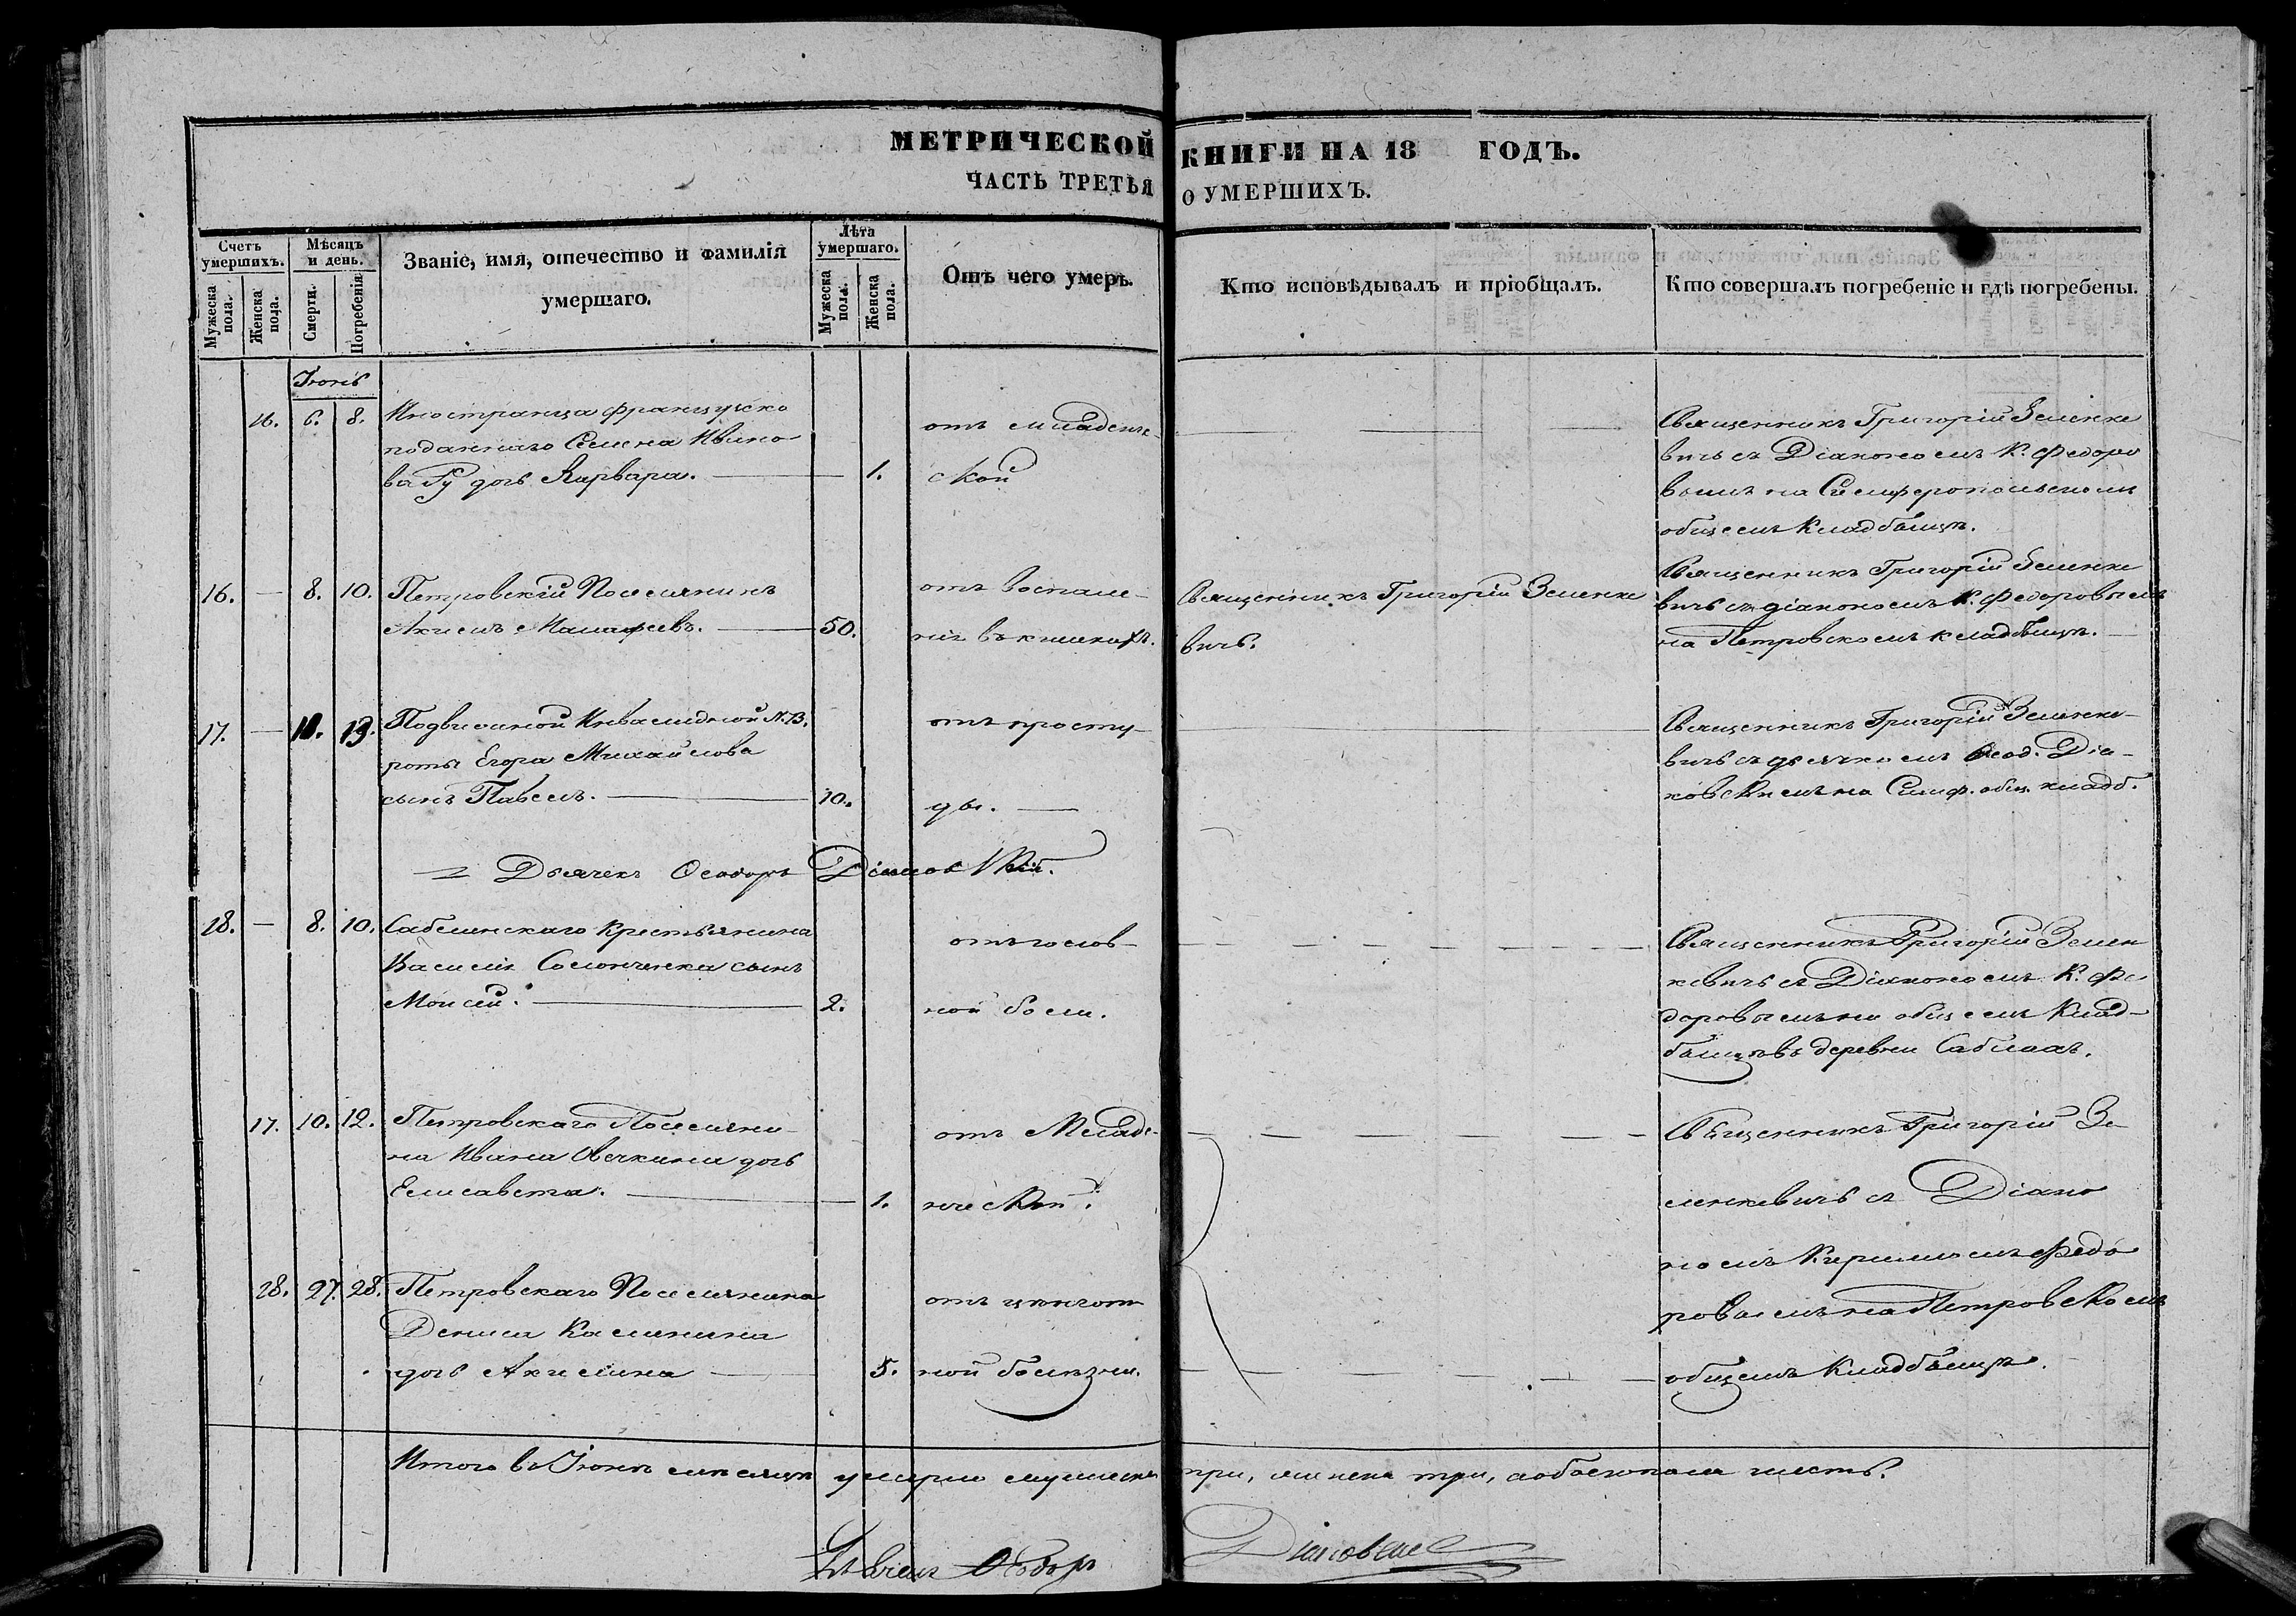 МЕТРИЧЕСКОЙ КНИГИ НА 18 ГОДЪ.
ЧАСТЬ ТРЕТЬЯ О УМЕРШИХЪ.
Счетъ умершихъ.
Мужеска пола.
Женска пола.
Мѣсяцъ и день.
Смерти.
Погребенія
Званіе, имя, отечество и фамилія
умершаго.
Лѣта умершаго.
Мужеска пола.
Женска пола.
Отъ чего умеръ.
Кто исповѣдывалъ и пріобщалъ.
Кто совершалъ погребеніе и гдѣ погребены.
Іюнь
16. 6. 8. Иностранца французско
подданнаго Семена Ивано
ва дочь Варвара. — 1.
отъ младенче-
ской
Священникъ Григорій Зеленке
вичь съ Діакономъ К. Федоро
вымъ на Симферопольскомъ
общемъ Кладбищѣ.
16. — 8. 10. Петровскій Поселянинъ
Акимъ Малафеевъ. — 50.
отъ воспале-
нія въ кишкахъ.
Священникъ Григорій Зеленке
вичь.
Священникъ Григорій Зеленке
вичь съ діакономъ К. Федоровымъ
на Петровскомъ кладбищѣ. —
17. — 11. 13. Подвижной Инвалидной N. 13.
роты Егора Михайлова
сынъ Павелъ. — 10.
отъ просту-
ды. —
Священникъ Григорій Зеленке-
вичь съ дьячкомъ Ѳеод. Діа-
ковскимъ на Симф. общ. кладб.
Дьячекъ Ѳеодоръ Діаковскій.
18. — 8. 10. Саблынскаго Крестьянина
Василія Солонченка сынъ
Моисей. — 2.
отъ голов-
ной боли.
Священникъ Григорій Зелен
кевичь съ Діакономъ К. Фе
доровымъ на общемъ Клад-
бищѣ въ деревни Саблахъ.
17. 10. 12. Петровскаго Поселяни-
на Ивана Овечкина дочь
Елисавета. — 1.
отъ Младе-
нческой.
Священникъ Григорій Зе
ленкевичь съ Діако
номъ Кириломъ Федо
ровымъ на Петровскомъ
общемъ Кладбищѣ.
18. 27. 28. Петровскаго Поселянина
Дениса Калинина
дочь Акилина — 5.
отъ цынгот
ной болѣзни.
Итого въ Іюнѣ мѣсяцѣ умерло мужеска три, женска три, а обоего пола шесть.
Дьячекъ Ѳеодоръ Діаковскій